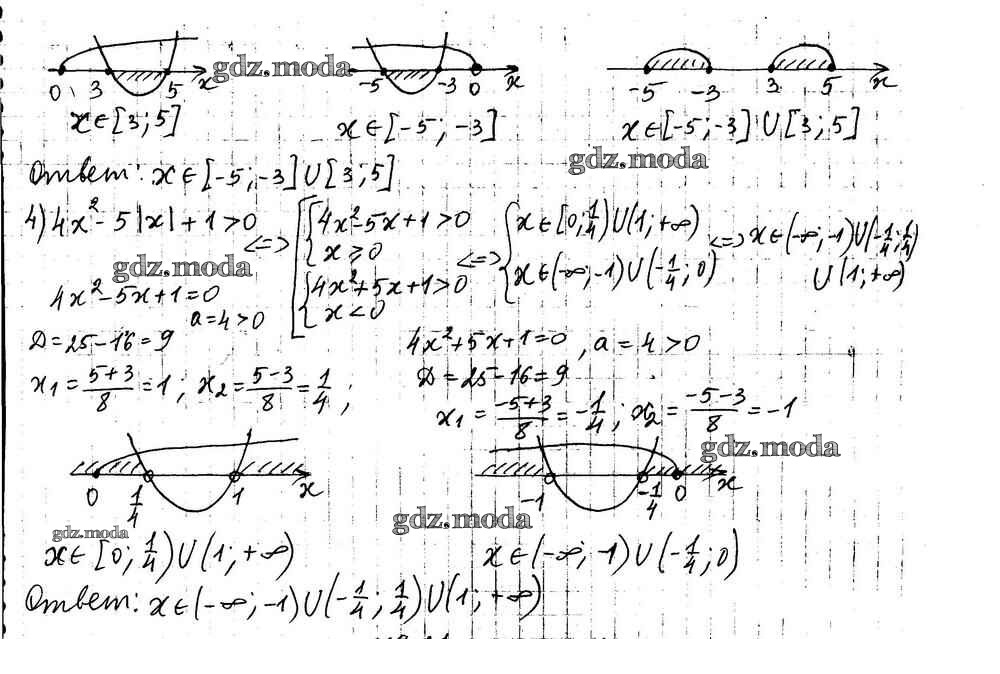 0 3 5 x gdz.moda -5 -3 0 x -5 -3 3 5 x
x∈[3;5] x∈[-5;-3] x∈[-5;-3]∪[3;5]
gdz.moda
Ответ: x∈[-5;-3]∪[3;5]
4) 4x²-5|x|+1>0 <=> [ { 4x²-5x+1>0 x≥0 { 4x²+5x+1>0 x<0 <=> { x∈[0;1/4)∪(1;+∞) x∈(-∞;-1)∪(-1/4;0) <=> x∈(-∞;-1)∪(-1/4;1/4) ∪(1;+∞)
gdz.moda
4x²-5x+1=0
a=4>0
D=25-16=9
x₁=(5+3)/8=1; x₂=(5-3)/8=1/4;
4x²+5x+1=0, a=4>0
D=25-16=9
x₁=(-5+3)/8=-1/4; x₂=(-5-3)/8=-1
gdz.moda
0 1/4 1 x -1 -1/4 0 x
gdz.moda
gdz.moda
x∈[0;1/4)∪(1;+∞) x∈(-∞;-1)∪(-1/4;0)
Ответ: x∈(-∞;-1)∪(-1/4;1/4)∪(1;+∞)